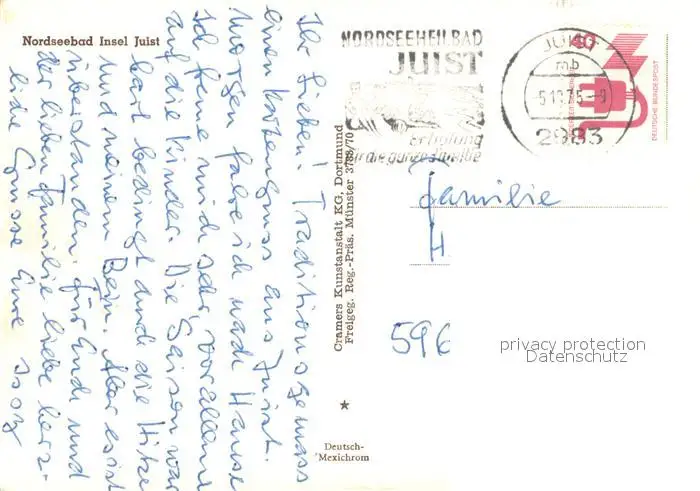 Nordseebad Insel Juist
Ihr Lieben! Traditionsgemäss
einen Kartengruss aus Juist.
Morgen fahre ich nach Hause
ich freue mich sehr, vor allem
auf die Kinder. Die Saison war
hart bedingt durch die Hitze
und meinem Bein. Aber es ist
überstanden. Für Euch und
der lieben Familie liebe herz-
liche Grüsse Eure
Cramers Kunstanstalt KG, Dortmund
Freigeg. Reg.-Präs. Münster 3788/70
★
Deutsch-
Mexichrom
NORDSEEHEILBAD
JUIST
Erholung
für die ganze Familie
JUIST
mb
-5.10.75-
2983
40
DEUTSCHE BUNDESPOST
Familie
H
596
privacy protection
Datenschutz